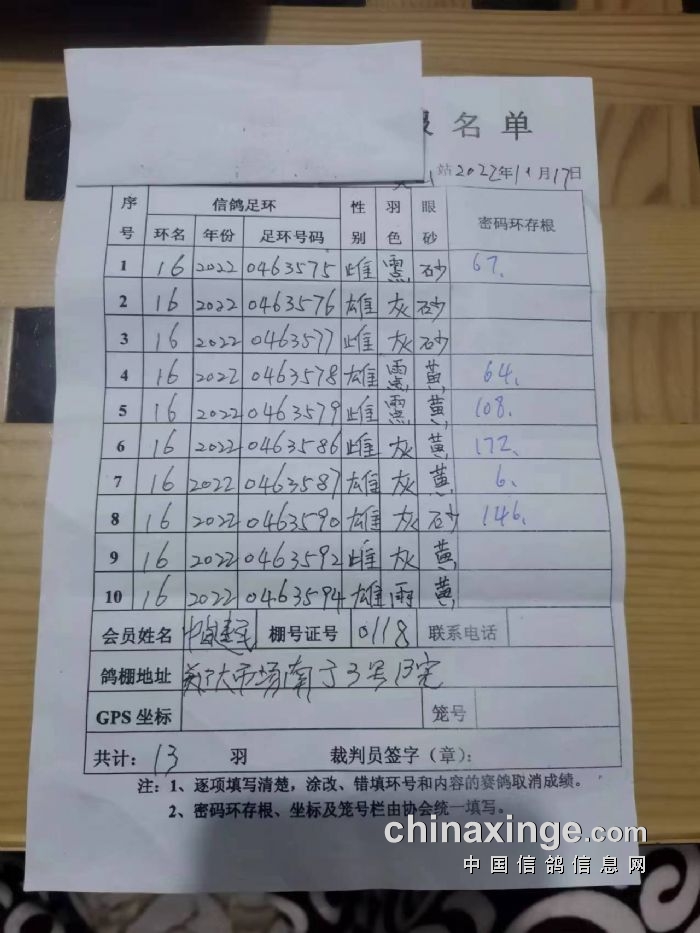 名单
站2022年11月17日
序号 信鸽足环 性别 羽色 眼砂 密码环存根
环名 年份 足环号码
1 16 2022 0463575 雌 砂 67.
2 16 2022 0463576 雄 灰 砂
3 16 2022 0463577 雌 灰 砂
4 16 2022 0463578 雄 黄 64.
5 16 2022 0463579 雌 黄 108.
6 16 2022 0463586 雌 灰 黄 172.
7 16 2022 0463587 雄 灰 黄 6.
8 16 2022 0463590 雄 灰 砂 146.
9 16 2022 0463592 雌 灰 黄
10 16 2022 0463594 雄 雨 黄
会员姓名 棚号证号 0118 联系电话
鸽棚地址 大市场南 3号
GPS 坐标 笼号
共计：13 羽 裁判员签字（章）：
注：1、逐项填写清楚，涂改、错填环号和内容的赛鸽取消成绩。
2、密码环存根、坐标及笼号栏由协会统一填写。
chinaxinge.com
中国信鸽信息网